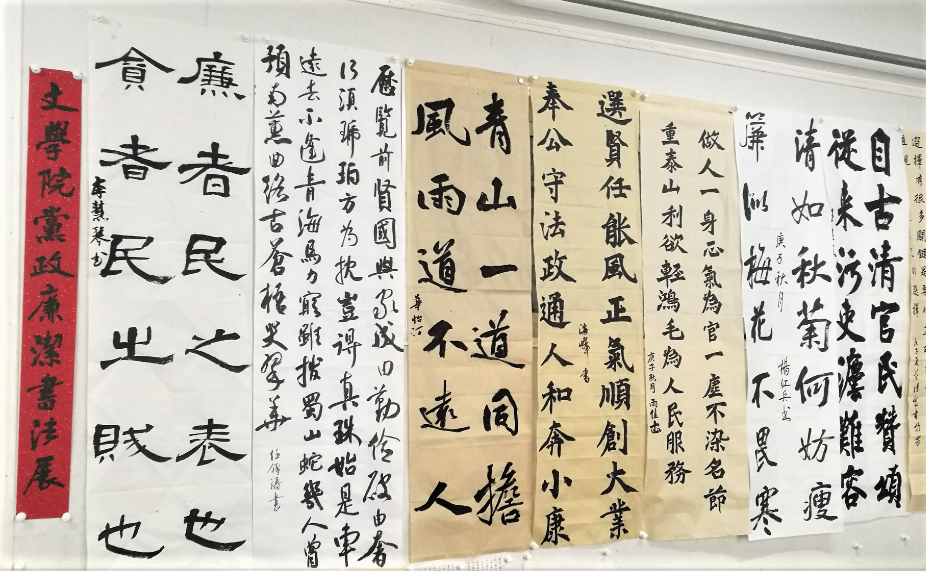 文學院黨政廉潔書法展
廉者民之表也
貪者民之賊也
歷覽前賢國與家成由勤儉破由奢
何須琥珀方為枕豈得真珠始是車
遠去不逢青海馬力窮難拔蜀山蛇幾人曾
預南薰曲終古蒼梧哭翠華
青山一道同擔
風雨道不遠人
選賢任能風正氣順創大業
奉公守法政通人和奔小康
海峰書
做人一身正氣為官一塵不染名節
重泰山利欲輕鴻毛為人民服務
庚子秋月雨佳书
清如秋菊何妨瘦
廉似梅花不畏寒
庚子秋月
楊江兵书
自古清官民贊頌
從來污吏灋難容
選擇有很多關鍵是